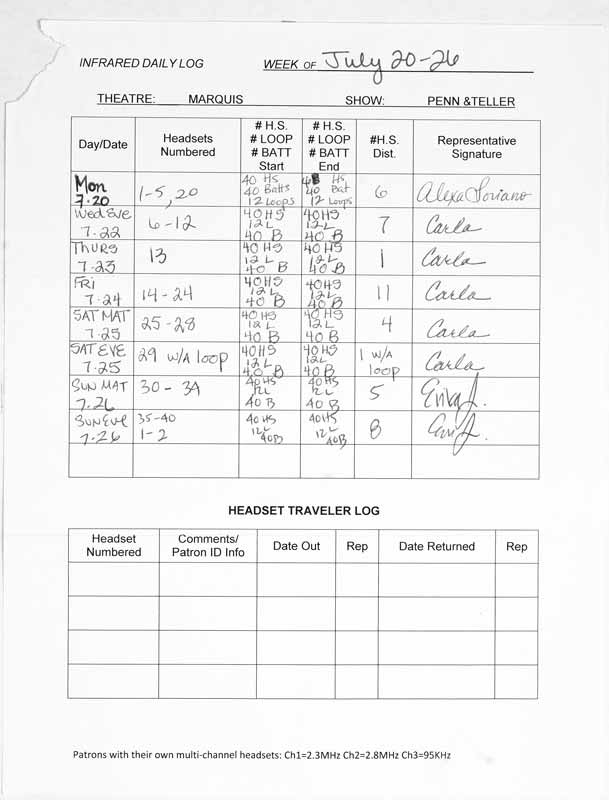 INFRARED DAILY LOG WEEK OF July 20-26
THEATRE: MARQUIS SHOW: PENN &TELLER
Day/Date Headsets Numbered # H.S. # LOOP # BATT Start # H.S. # LOOP # BATT End #H.S. Dist. Representative Signature
Mon 7.20 1-5, 20 40 HS 40 Batts 12 Loops HS, 40 Bat 12 Loops 6 Alexa Soriano
Wed Eve 7.22 6-12 40 HS 12 L 40 B 40 HS 12 L 40 B 7 Carla
THURS 7.23 13 40 HS 12 L 40 B 40 HS 12 L 40 B 1 Carla
FRI 7.24 14-24 40 HS 12 L 40 B 40 HS 12 L 40 B 11 Carla
SAT MAT 7.25 25-28 40 HS 12 L 40 B 40 HS 12 L 40 B 4 Carla
SAT EVE 7.25 29 w/A loop 40 HS 12 L 40 B 40 HS 12 L 40 B 1 w/A loop Carla
SUN MAT 7.26 30-34 40 HS 12L 40 B 40 HS 12L 40 B 5 Erika J.
SUN EVE 7.26 35-40 1-2 40HS 12L 40B 40HS 12L 40B 8
HEADSET TRAVELER LOG
Headset Numbered Comments/ Patron ID Info Date Out Rep Date Returned Rep
Patrons with their own multi-channel headsets: Ch1=2.3MHz Ch2=2.8MHz Ch3=95KHz